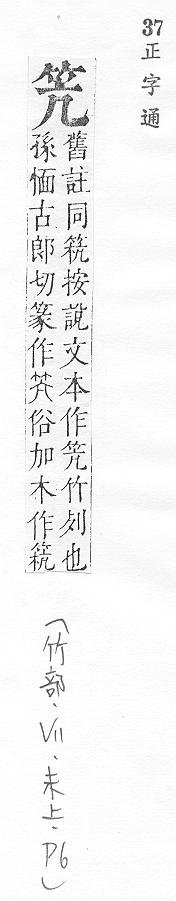 37
正字通
笐
舊註同 按說文本作笐竹列也
孫愐古郎切篆作笐俗加木作
(竹部·VII·未上·P6)